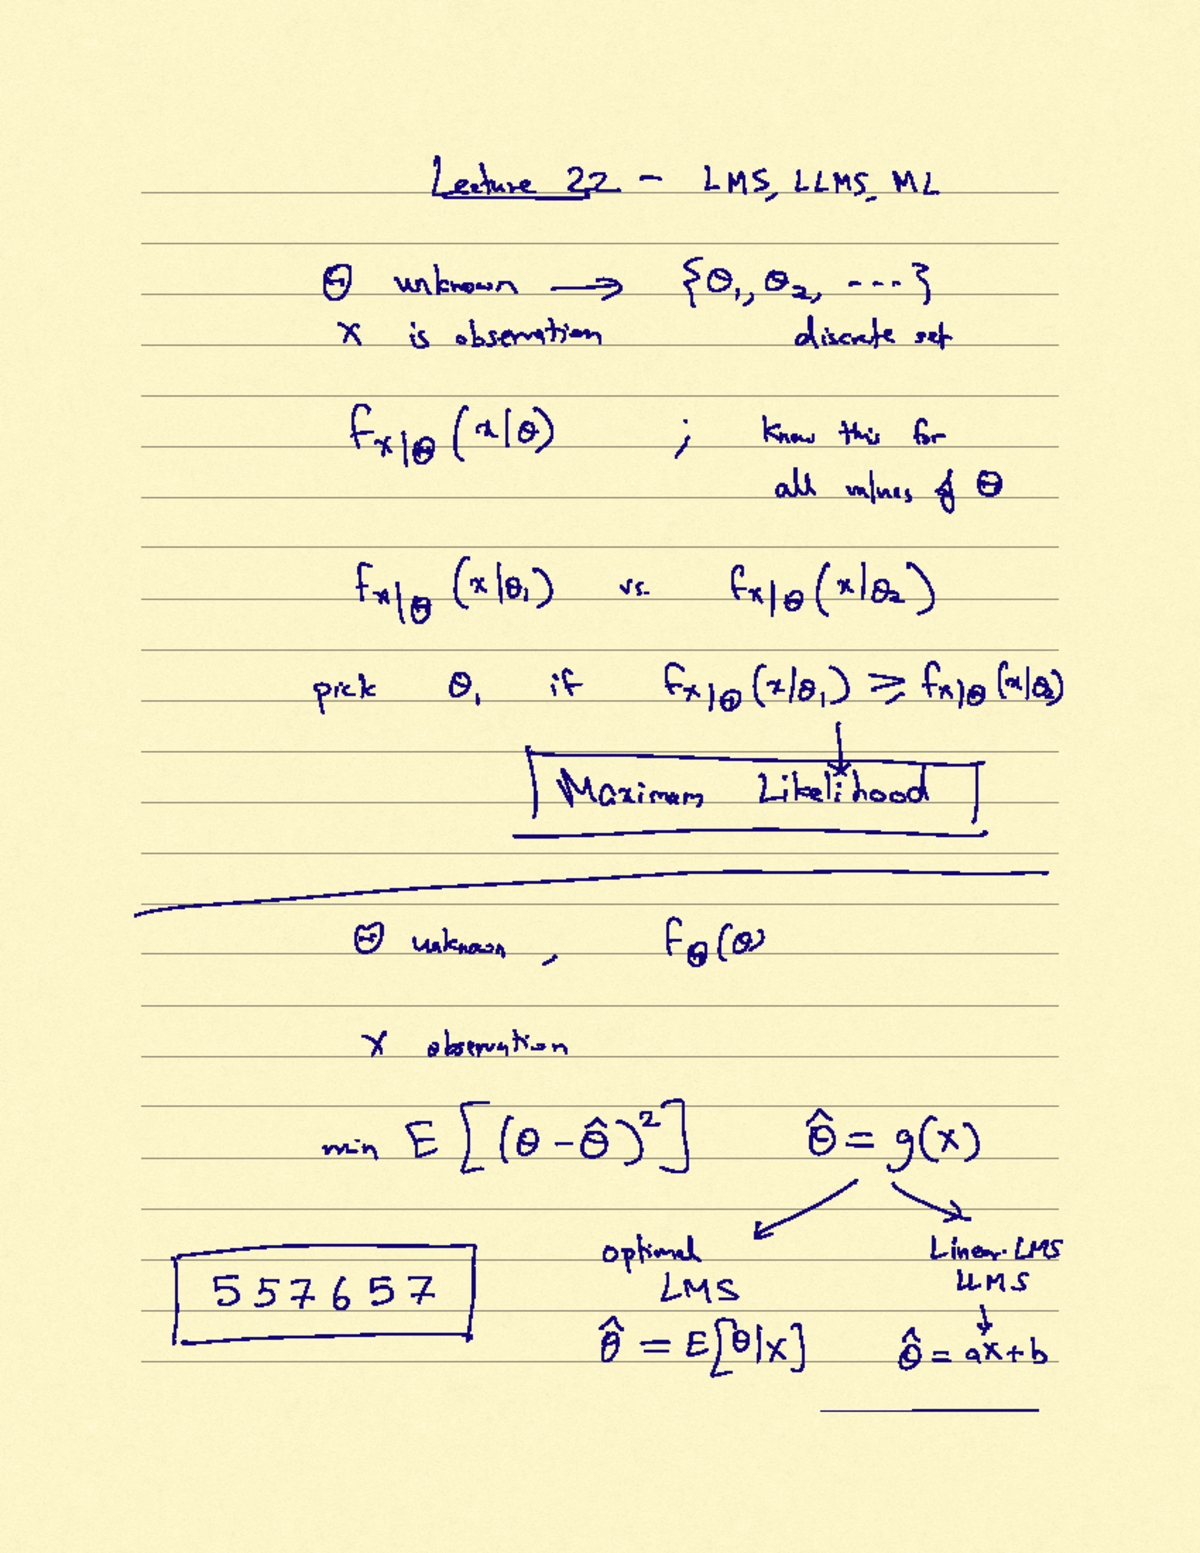 Lecture 22 - LMS, LLMS, ML
Θ unknown → {θ₁, θ₂, ---}
X is observation discrete set
f_X|Θ (x|θ) ; know this for
all values of Θ
f_X|Θ (x|θ₁) vs. f_X|Θ (x|θ₂)
pick θ₁ if f_X|Θ (x|θ₁) ≥ f_X|Θ (x|θ₂)
Maximum Likelihood
Θ unknown, f_Θ (θ)
X observation
min E [(Θ - Θ̂)²] Θ̂ = g(X)
optimal Linear LMS
LMS LLMS
557657
Θ̂ = E[Θ|X] Θ̂ = aX+b